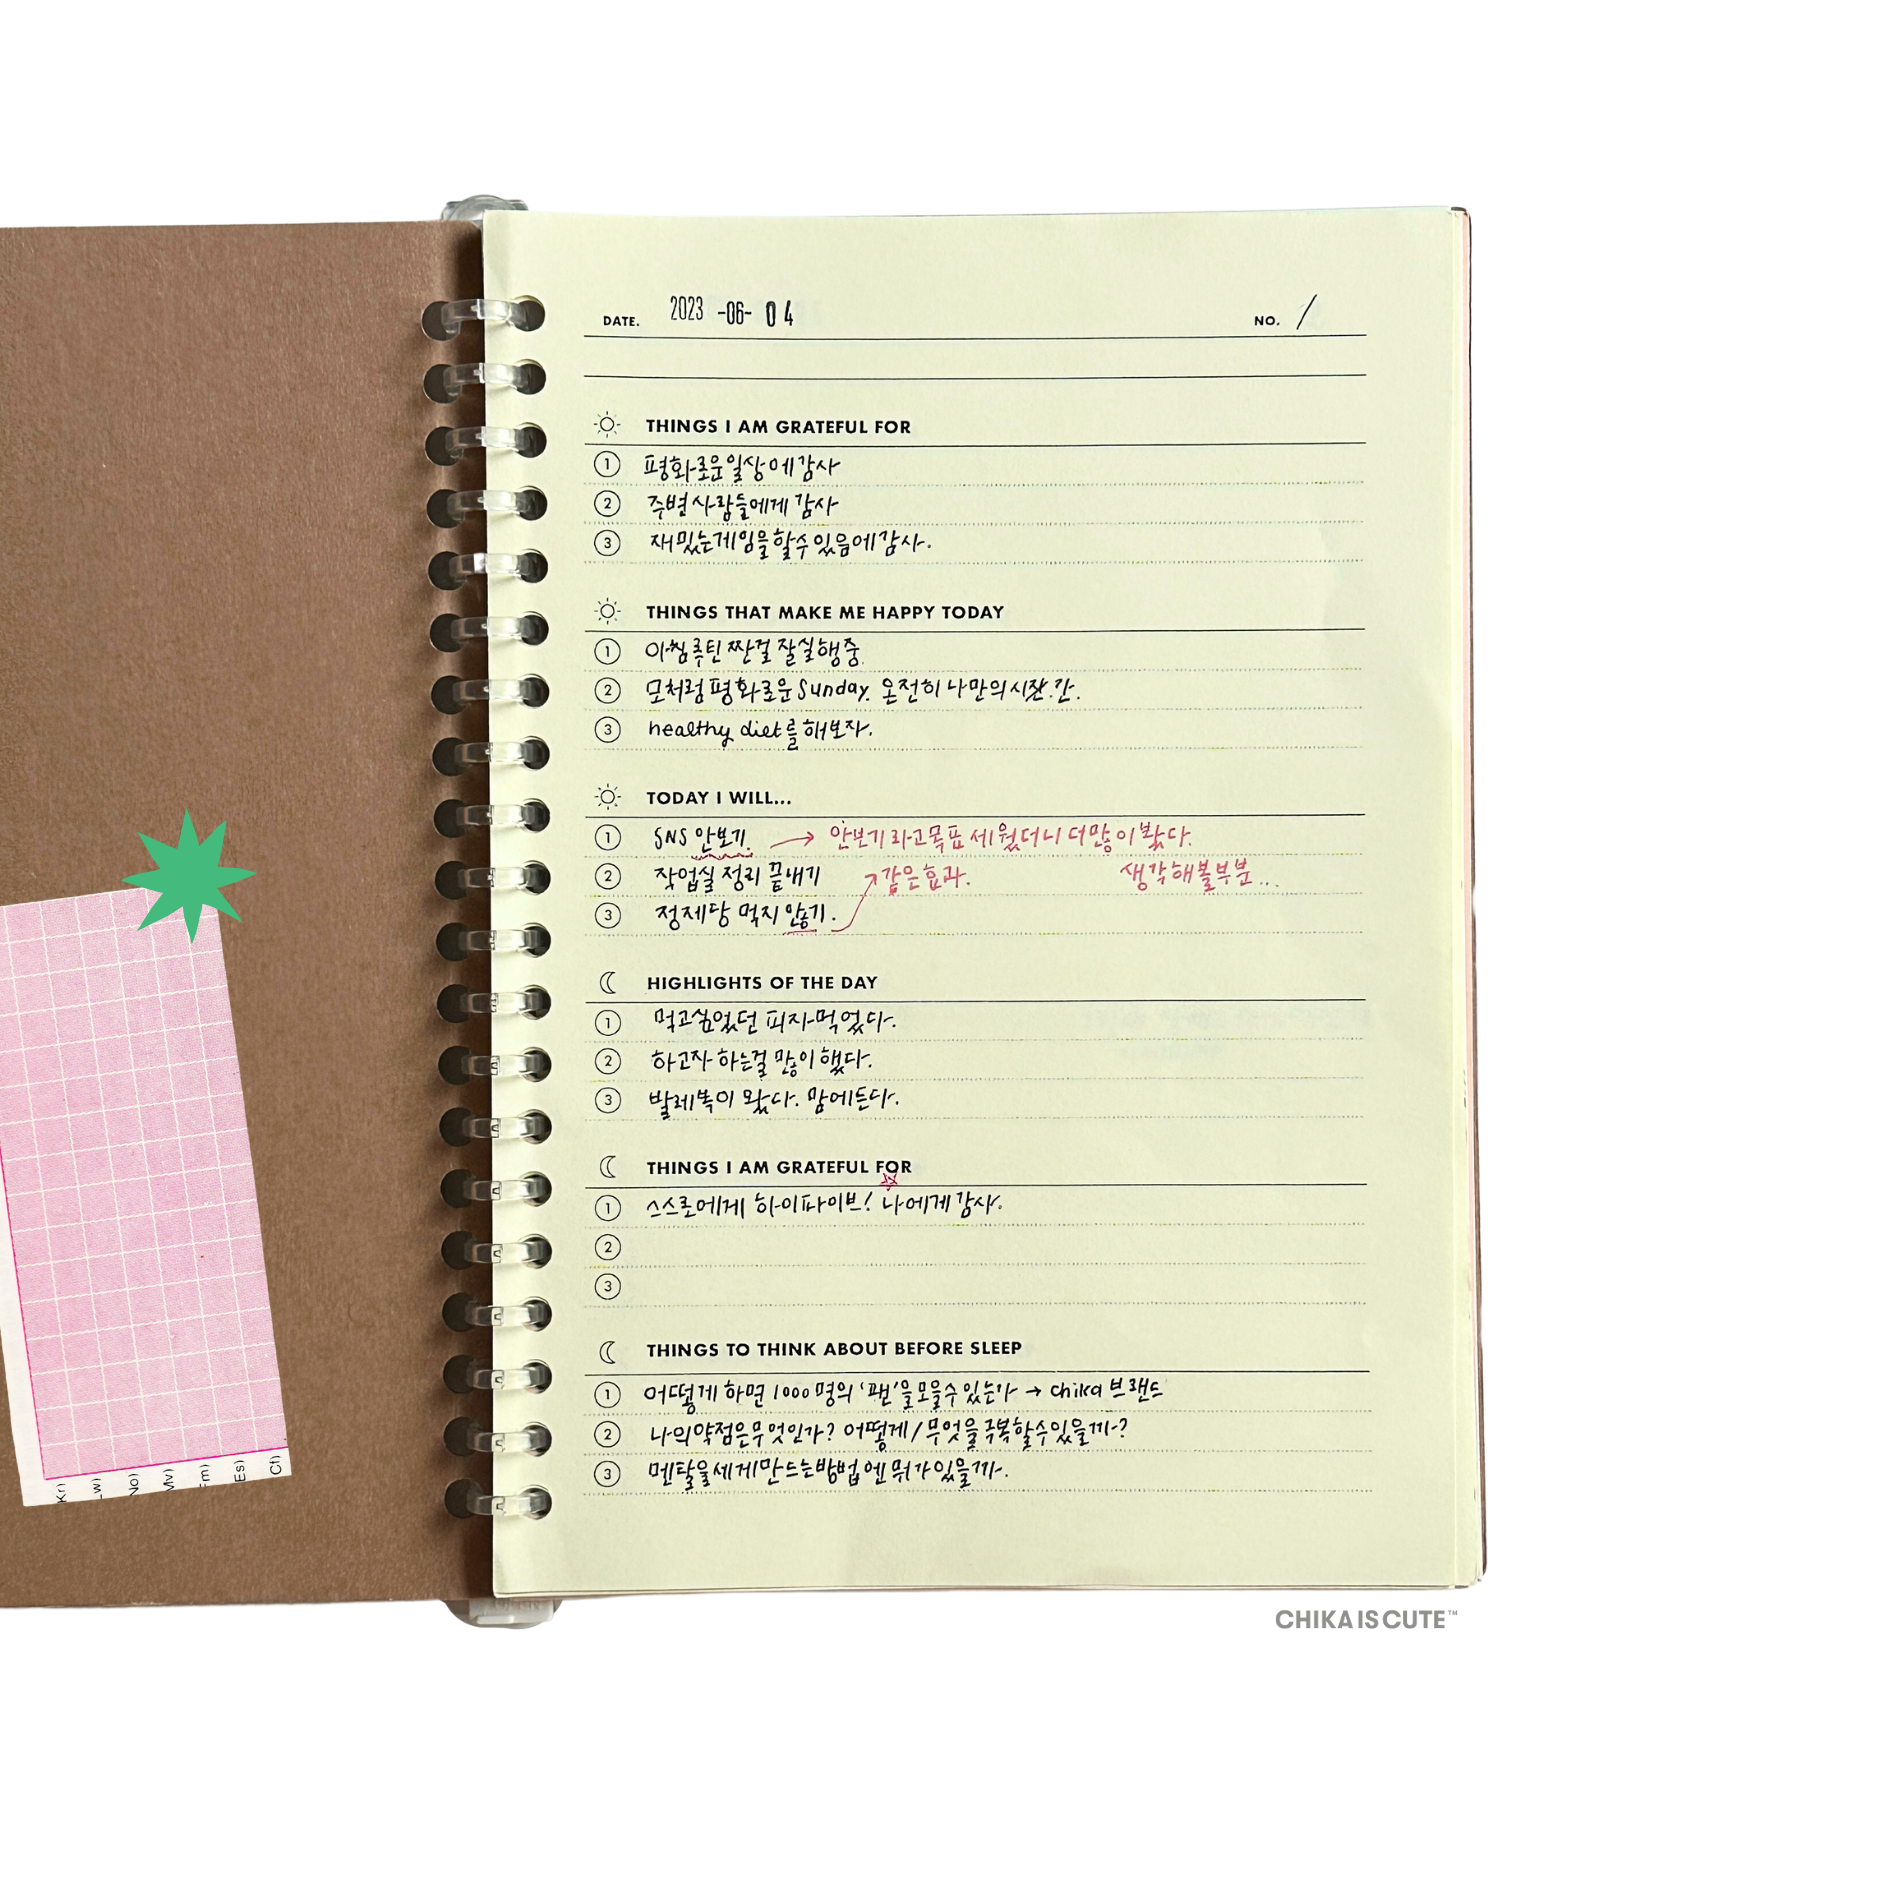 DATE. 2023 -06- 04 NO. /
THINGS I AM GRATEFUL FOR
1 평화로운 일상에 감사
2 주변 사람들에게 감사
3 재밌는 게임을 할 수 있음에 감사.
THINGS THAT MAKE ME HAPPY TODAY
1 아침 루틴 짠걸 잘 실행중
2 모처럼 평화로운 Sunday. 온전히 나만의 시간.
3 healthy diet를 해보자.
TODAY I WILL...
1 SNS 안보기. → 안보기라고 목표 세웠더니 더 많이 봤다.
2 작업실 정리 끝내기 같은 효과. 생각해볼 부분...
3 정제당 먹지 않기.
HIGHLIGHTS OF THE DAY
1 먹고싶었던 피자 먹었다.
2 하고자 하는걸 많이 했다.
3 발레복이 왔다. 맘에든다.
THINGS I AM GRATEFUL FOR
1 스스로에게 하이파이브! 나에게 감사.
2
3
THINGS TO THINK ABOUT BEFORE SLEEP
1 어떻게 하면 1000명의 '팬'을 모을 수 있는가 → chika 브랜드
2 나의 약점은 무엇인가? 어떻게/무엇을 극복할 수 있을까?
3 멘탈을 세게 만드는 방법엔 뭐가 있을까.
Kr)
Lw)
No)
Mv)
Fm)
Es)
Cf)
CHIKA IS CUTE™